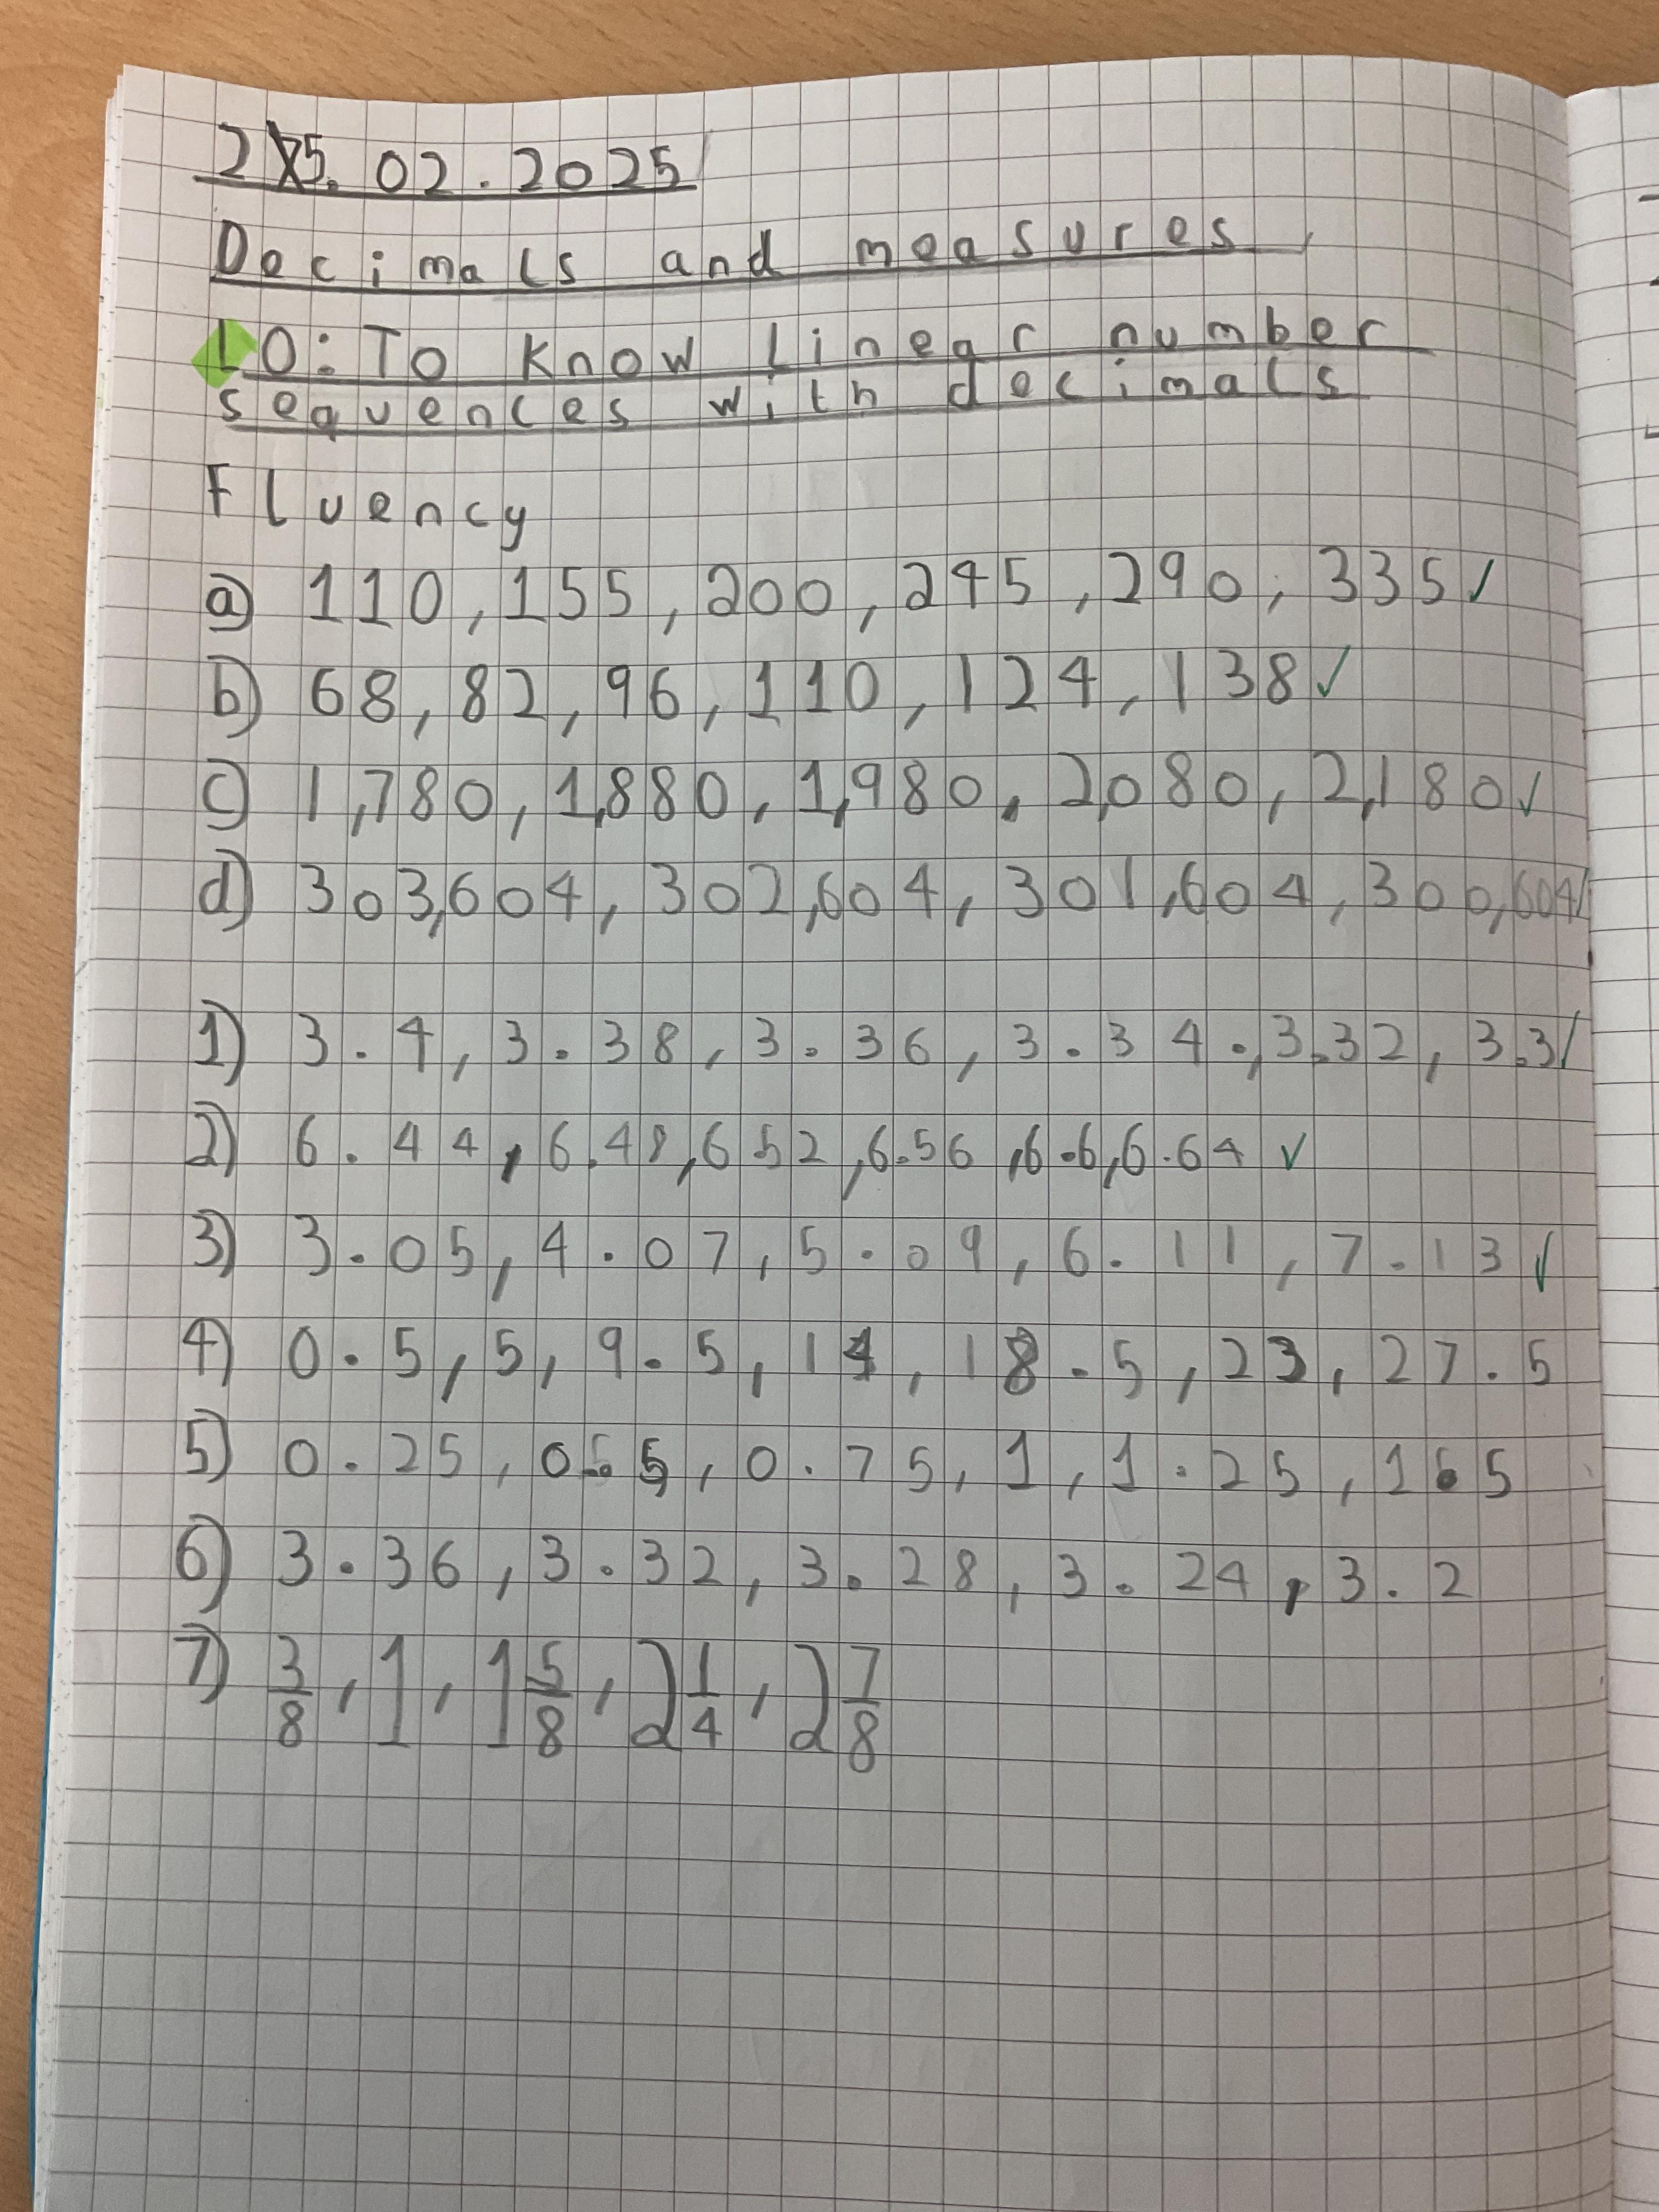 25.02.2025
Decimals and measures
LO: To Know linear number
sequences with decimals
Fluency
a) 110, 155, 200, 245, 290, 335 ✓
b) 68, 82, 96, 110, 124, 138 ✓
c) 1,780, 1,880, 1,980, 2,080, 2,180 ✓
d) 303,604, 302,604, 301,604, 300,604
1) 3.4, 3.38, 3.36, 3.34, 3.32, 3.3
2) 6.44, 6.48, 6.52, 6.56, 6.6, 6.64 ✓
3) 3.05, 4.07, 5.09, 6.11, 7.13 ✓
4) 0.5, 5, 9.5, 14, 18.5, 23, 27.5
5) 0.25, 0.5, 0.75, 1, 1.25, 1.5
6) 3.36, 3.32, 3.28, 3.24, 3.2
7) 3/8, 1, 1 5/8, 2 1/4, 2 7/8